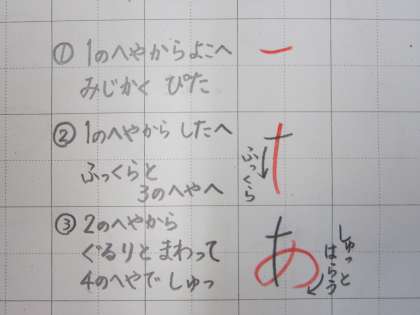 ① 1のへやからよこへ
みじかく ぴた
② 1のへやから したへ
ふっくらと
3のへやへ
ふっくら
③ 2のへやから
ぐるりと まわって
4のへやで しゅっ
あ
しゅっと
はらう